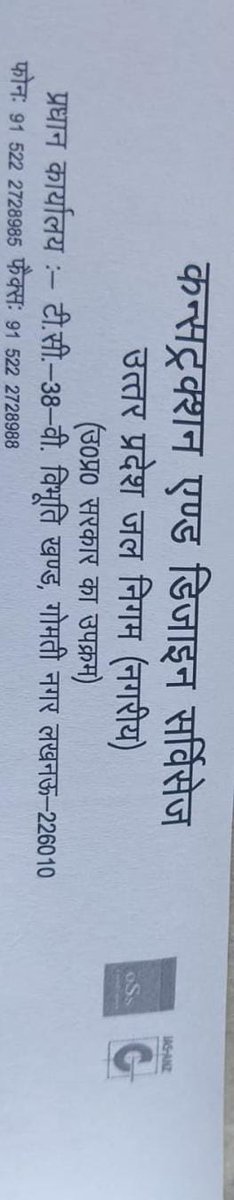 कन्सट्रक्शन एण्ड डिजाइन सर्विसेज
उत्तर प्रदेश जल निगम (नगरीय)
(उ0प्र0 सरकार का उपक्रम)
प्रधान कार्यालय :– टी.सी.–38–वी. विभूति खण्ड, गोमती नगर लखनऊ–226010
फोन: 91 522 2728985 फैक्स: 91 522 2728988
JAS-ANZ
C